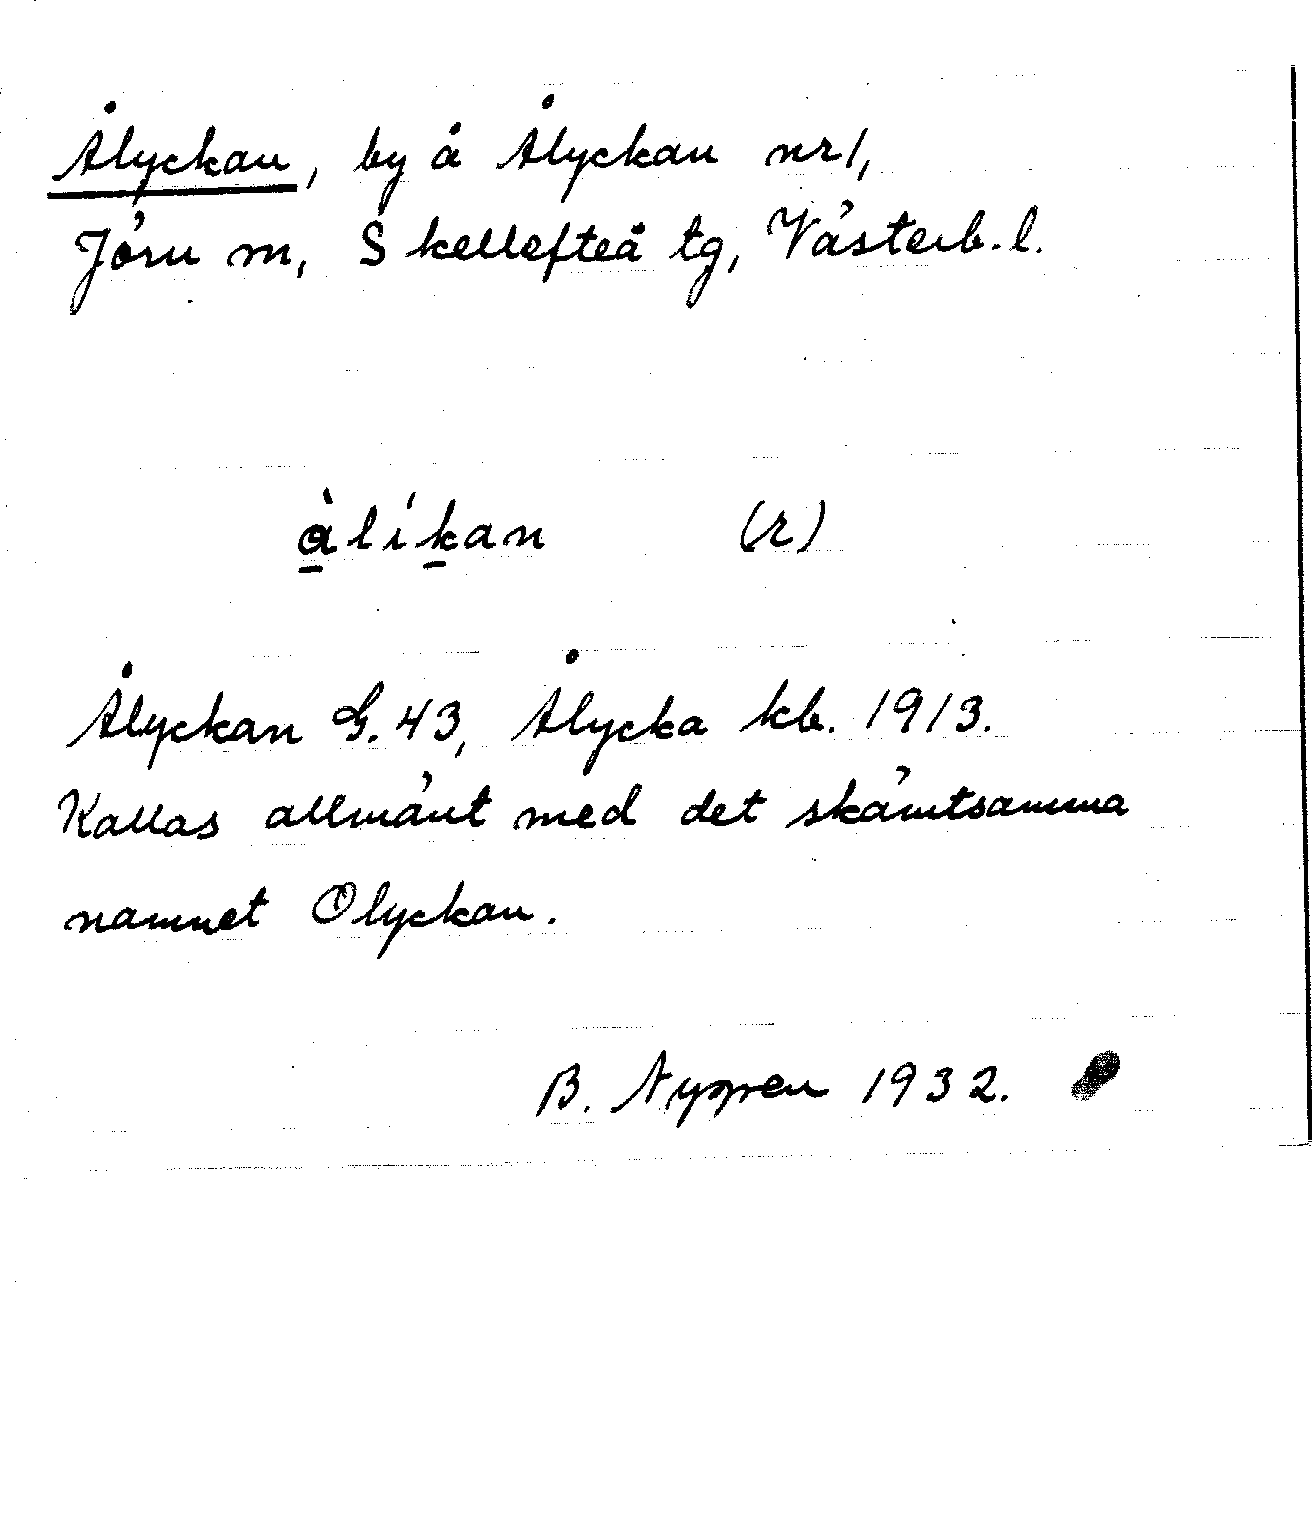 Ålyckan, by å Ålyckan nr 1,
Jörn m, Skellefteå tg, Västerb. l.
ɑ̱̀lík̲an (r)
Ålyckan G. 43, Ålycka kb. 1913.
Kallas allmänt med det skämtsamma
namnet Olyckan.
B. Nyppen 1932.